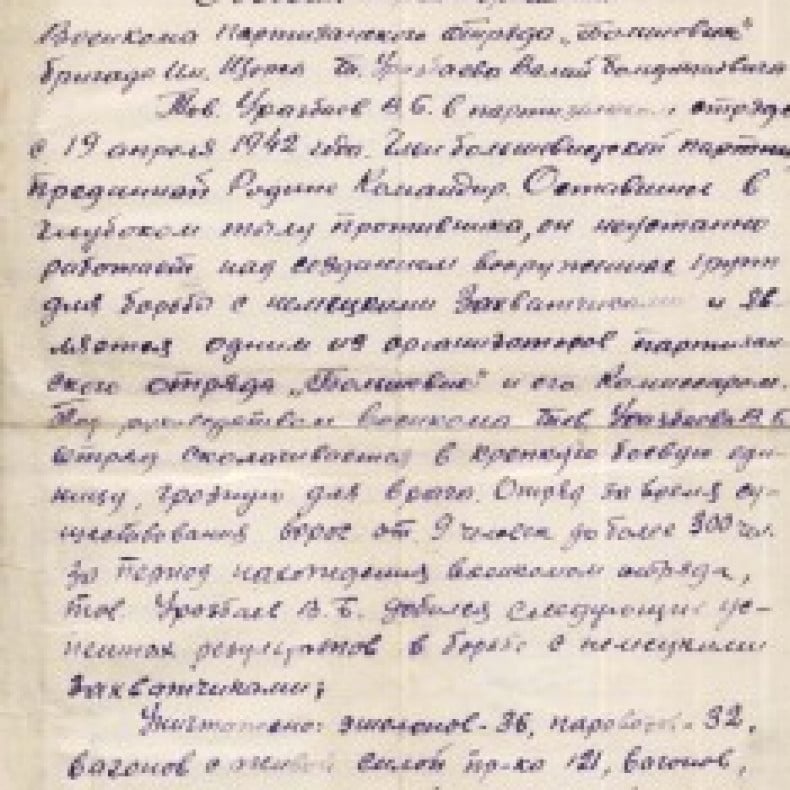 Военкома партизанского отряда „Большевик“
бригады им. Щорса т. Уразбаева Валий
Тов. Уразбаев В. Б. в партизанском отряде
с 19 апреля 1942 года. Член большевистской партии,
преданный Родине Командир. Оставшись в
глубоком тылу противника, он неустанно
работает над созданием вооруженных групп
для борьбы с немецкими Захватчиками и яв-
ляется одним из организаторов партизан-
ского отряда „Большевик“ и его Комиссаром.
Под руководством военкома тов. Уразбаева В. Б.
отряд сколачивается в крепкую боевую еди-
ницу, грозную для врага. Отряд за время су-
ществования вырос от 9 человек до более 300 чел.
За период нахождения военкомом отряда,
тов. Уразбаев В. Б. добился следующих ус-
пешных результатов в борьбе с немецкими
захватчиками;
Уничтожено: эшелонов - 36, паровозов - 32,
вагонов с живой силой пр-ка 121, вагонов,